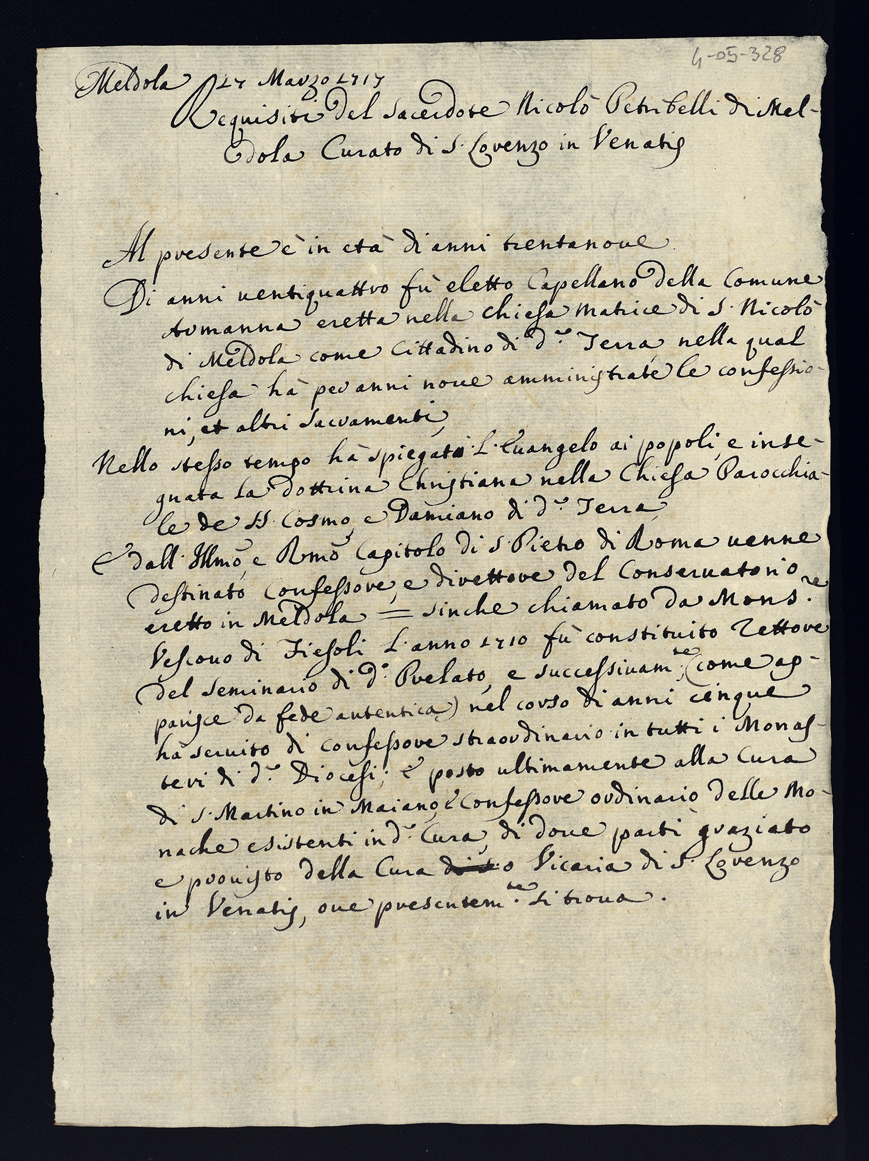 4-05-328
Meldola 27 Marzo 1717
Requisiti del Sacerdote Nicolò Petribelli di Mel-
dola Curato di S. Lorenzo in Venatis
Al presente è in età di anni trentanoue
Di anni uentiquattro fù eletto Capellano della Comune
Aumanna eretta nella Chiesa Matrice di S. Nicolò
di Meldola come Cittadino di d.ª Terra, nella qual
chiesa hà per anni noue amministrate le confessio-
ni, et altri Sacramenti,
Nello stesso tempo hà spiegato l'Euangelo ai popoli, e inse-
gnata la dottrina Christiana nella Chiesa Parocchia-
le de SS. Cosmo, e Damiano di d.ª Terra,
E dall'Illmo, e Rmo Capitolo di S. Pietro di Roma uenne
destinato Confessore, e direttore del Conseruatorio
eretto in Meldola = sinche chiamato da Mons.re
Vescouo di Fiesoli l'anno 1710 fù constituito Rettore
del Seminario di d.º Prelato, e successiuam.te (come ap-
parisce da fede autentica) nel corso di anni cinque
hà seruito di confessore straordinario in tutti i Monas-
teri di d.ª Diocesi; e posto ultimamente alla Cura
di S. Martino in Maiano, e Confessore ordinario delle Mo-
nache esistenti in d.ª Cura, di doue partì graziato
e prouisto della Cura o Vicaria di S. Lorenzo
in Venatis, oue presentem.te si troua.